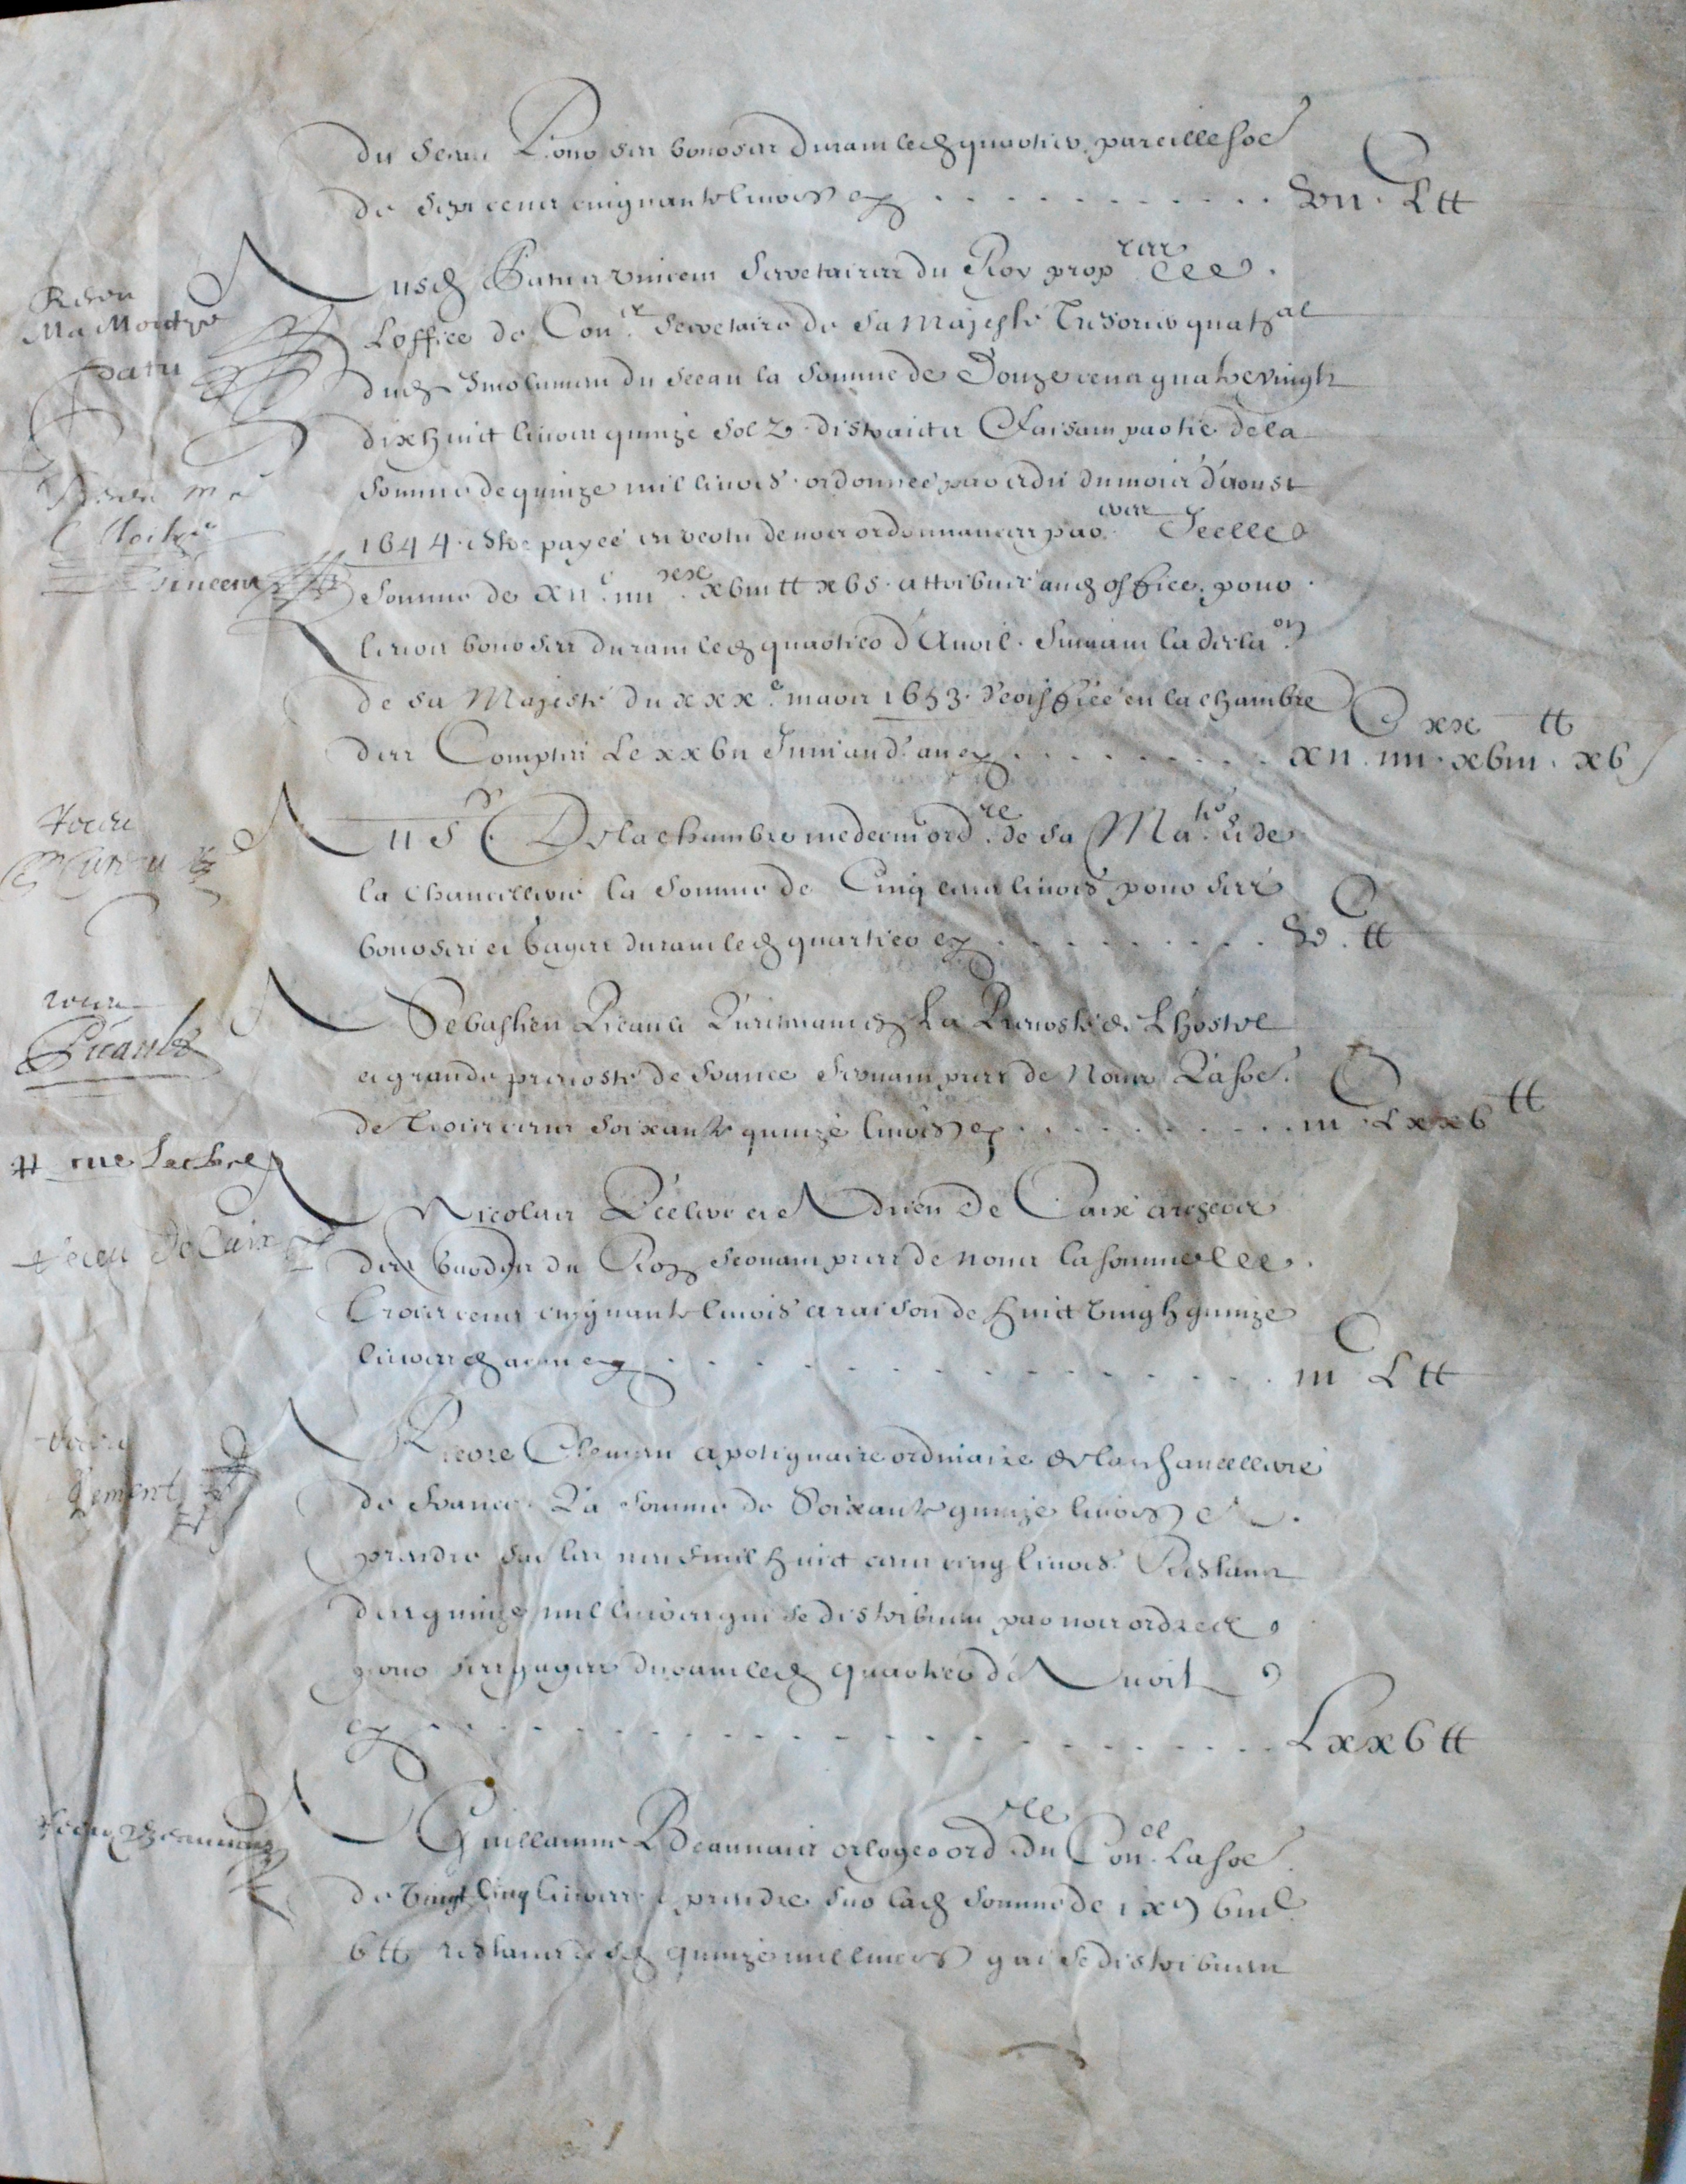 du sceau Pour ses bourses durant led quartier pareille soe
de sept cens cinquante livres cy . . . . . . . . . . . . vii C L tt
Ausd Patu et Vincent Secretaires du Roy prop res de
Receu
Ma Montre
Patu
L'office de Con er Secretaire de sa Majesté Tresorier quat al
dud Emolument du sceau la somme de Douze cens quatrevingtz
dixhuict livres quinze solz distraicte Faisant partie de la
somme de quinze mil livres ordonnée par edit du mois d'aoust
1644 estre payée en vertu de nos ordonnances par Icelle
Vincent
somme de xii C iiii xx xviii tt xv s attribuée aud office pour
leurs bourses durant led quartier d'Avril suivant la decla on
de sa Majesté du xxx e mars 1653 veriffiée en la chambre
des Comptes Le xxvii Juin aud an cy . . . . . . . . . xii C iiii xx xviii tt xv s
Au S r De la chambre medecin ord re de sa Ma té & de
Receu
la chancellerie la somme de Cinq cens livres pour ses
bourses et gages durant led quartier cy . . . . . . . . . v C tt
A Sebastien Picault Lieutenant en La Prevosté de L'hostel
receu
Picault
et grande prevosté de France servant pres de Nous La soe
de Trois cens soixante quinze livres cy . . . . . . . . . iii C Lxxv tt
A Nicolas et Adrien De Caix archers
receu De Caix
des gardes du Roy servans pres de nous la somme de
Trois cens cinquante livres a raison de huict vingtz quinze
livres chacun cy . . . . . . . . . . . . . iii C L tt
A Pierre Clement apotiquaire ordinaire de la chancellerie
receu
Clement
de France La somme de Soixante quinze livres a
prendre sur les neuf mil huict cens cinq livres Restans
des quinze mil livres qui se distribuent par nos ordres
pour ses gages durant led quartier d'Avril
cy . . . . . . . . . . . . . . . . . . . Lxxv tt
A Guillaume Beauvais orloger ord re du Con el La soe
receu Beauvais
de Vingt Cinq livres a prendre sur lad somme de ix m viii C
v tt restans desd quinze mil livres qui se distribuent